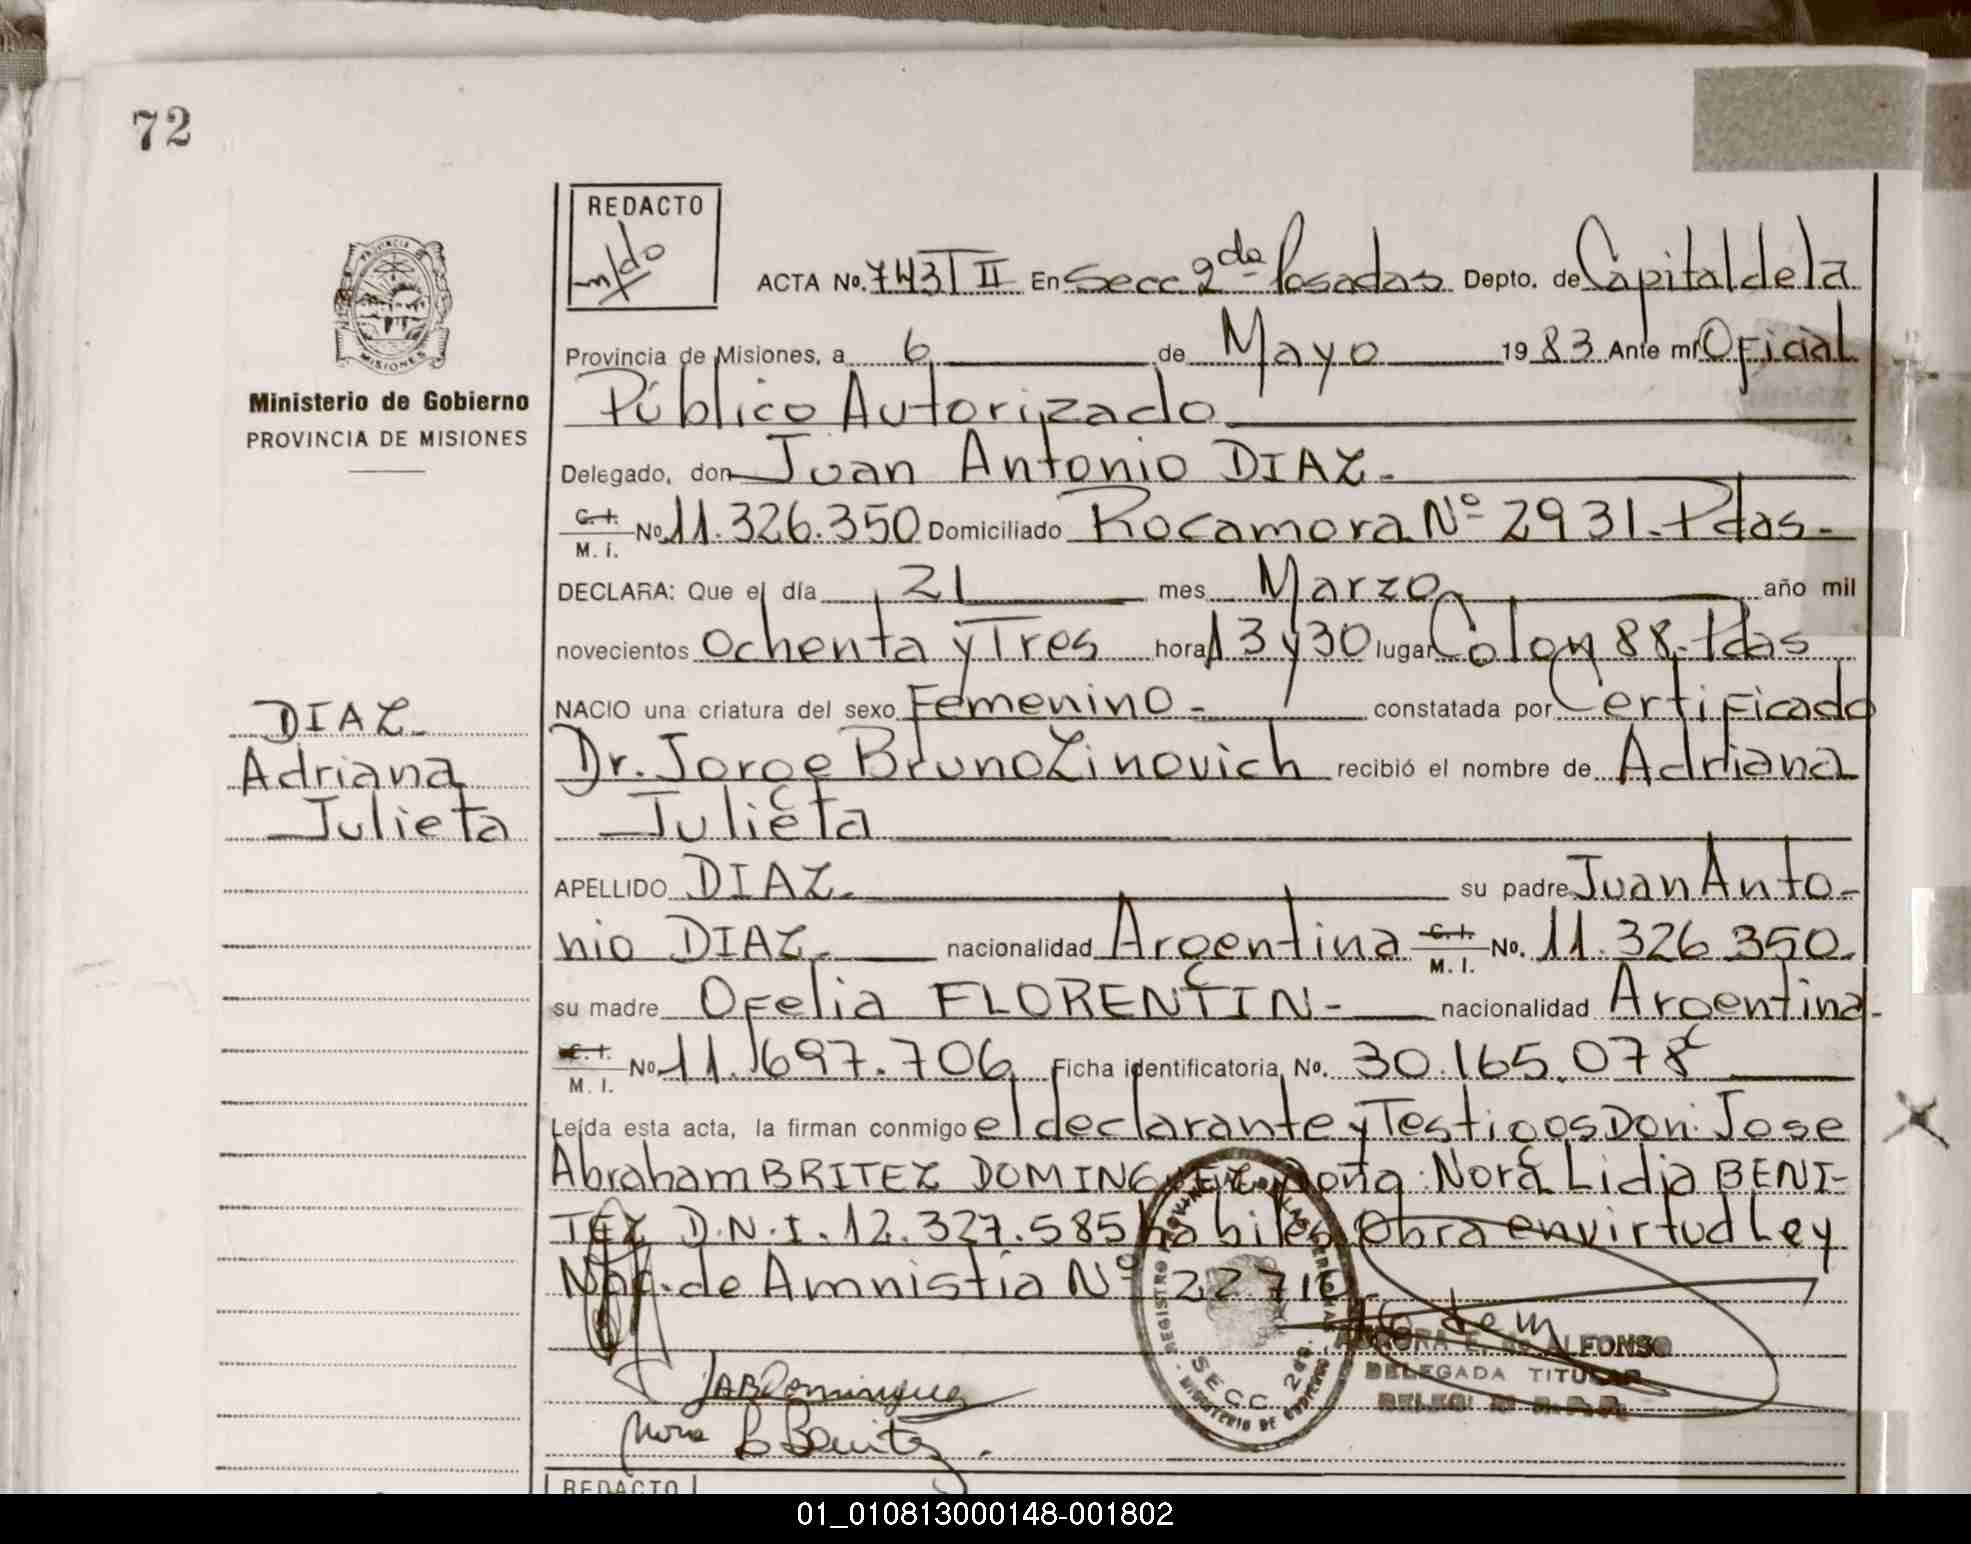 72
REDACTO
m/do
PROVINCIA
MISIONES
Ministerio de Gobierno
PROVINCIA DE MISIONES
ACTA No. 743 T II En Secc 2da Posadas Depto. de Capital de la
Provincia de Misiones, a 6 de Mayo 1983 Ante mí Oficial
Público Autorizado
Delegado, don Juan Antonio DIAZ.
C. I. M. I. No 11.326.350 Domiciliado Rocamora Nº 2931. Pdas.
DECLARA: Que el día 21 mes Marzo año mil
novecientos ochenta y Tres hora 13 y 30 lugar Colon 88. Pdas
NACIO una criatura del sexo Femenino - constatada por Certificado
Dr. Jorge Bruno Zinovich recibió el nombre de Adriana
Julieta
DIAZ
Adriana
Julieta
APELLIDO DIAZ. su padre Juan Anto-
nio DIAZ. nacionalidad Argentina C. I. M. I. No. 11.326.350.
su madre Ofelia FLORENTIN - nacionalidad Argentina.
C. I. M. I. No 11.697.706 Ficha identificatoria, No. 30.165.078
Leída esta acta, la firman conmigo el declarante y Testigos Don: Jose
Abraham BRITEZ DOMINGUEZ Doña: Nora Lidia BENI-
TEZ D.N.I. 12.327.585 habiles Obra en virtud Ley
Nac. de Amnistia Nº
SECC 2da.
ALFONSO
DELEGADA TITULAR
JABDominguez
Nora L Benitez.
REDACTO
01_010813000148-001802